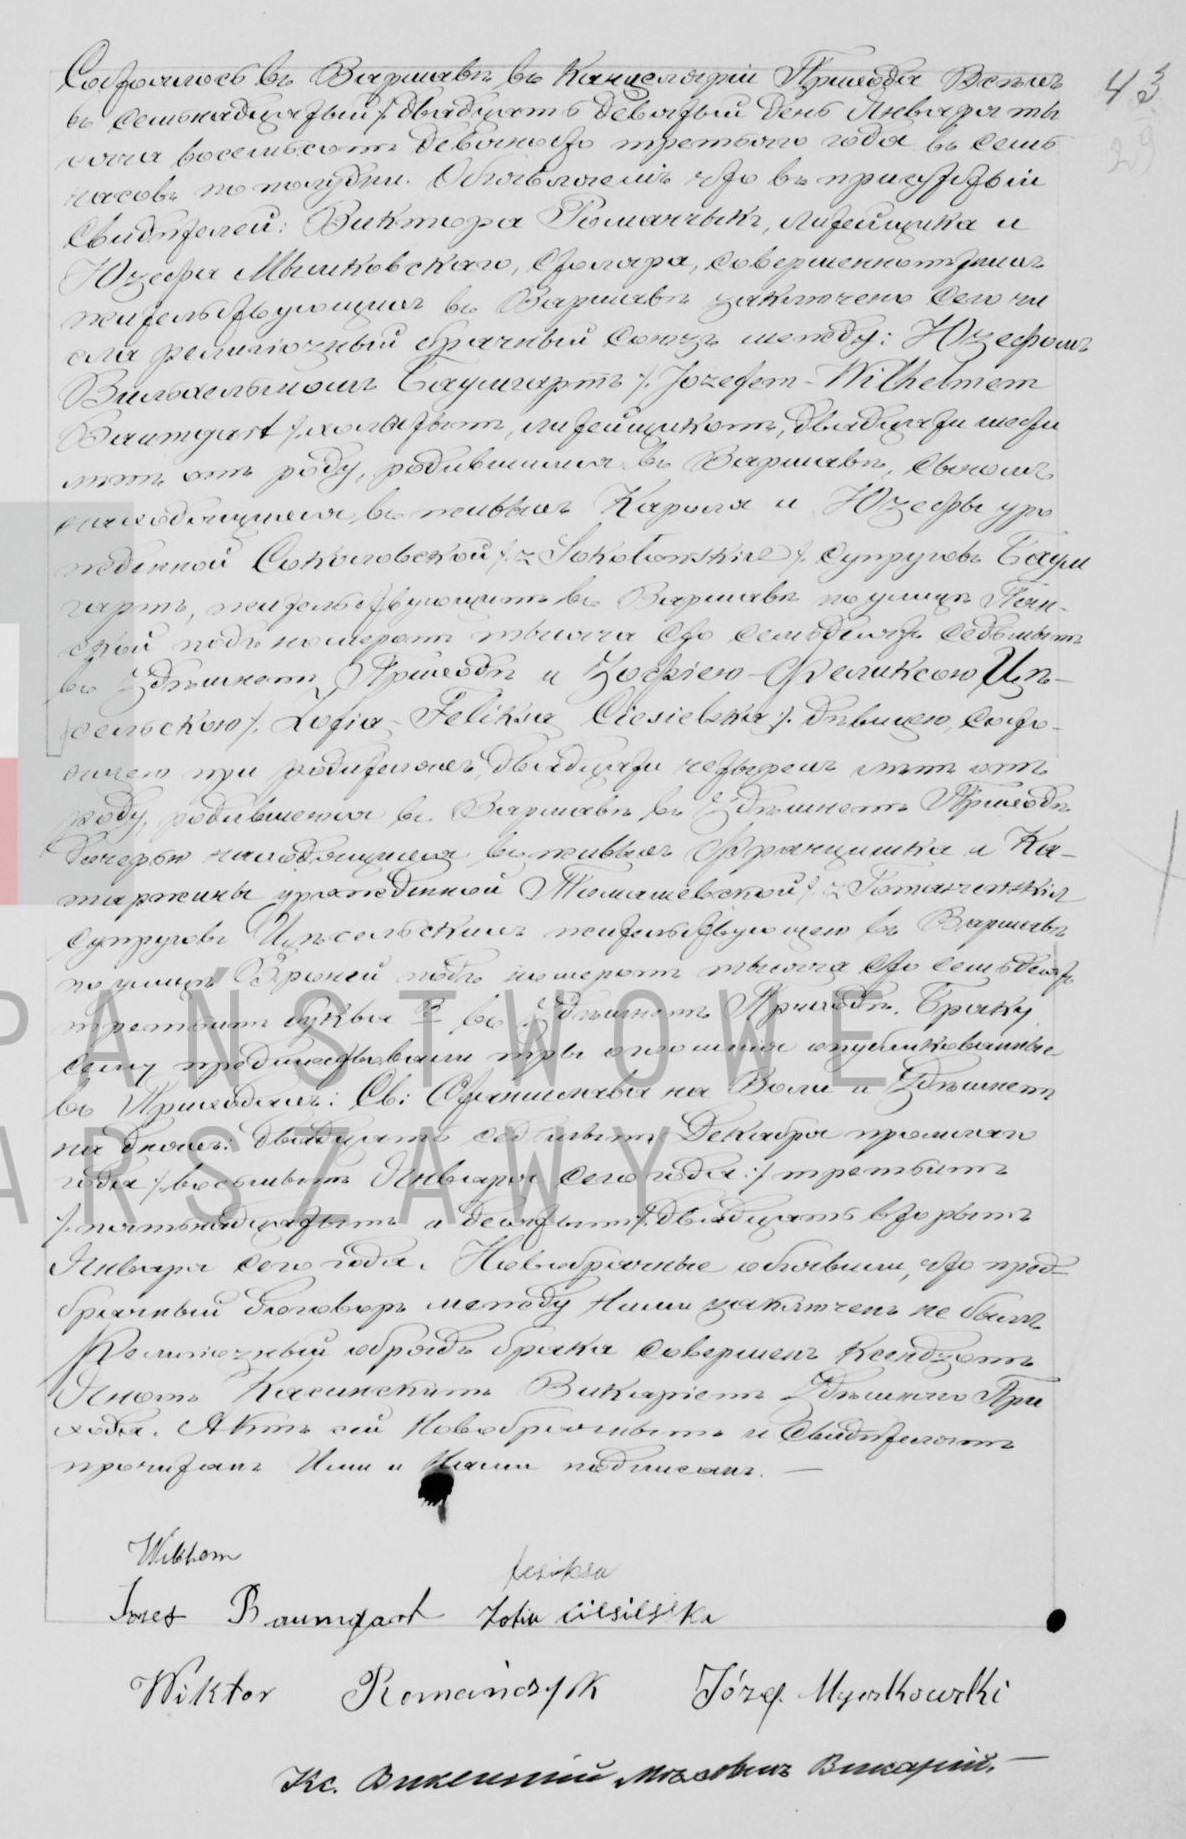 43
29
Состоялось въ Варшавѣ въ Канцелярии Прихода Всѣхъ
въ семьнадцатый /. двадцать девятый день Января ты
сяча восемьсотъ девяносто третьяго года въ семь
часовъ по полудни. Объявляемъ что въ присутствии
Свидѣтелей: Виктора Романчыкъ, литейщика и
Юзефа Мышковскаго, столяра, совершеннолѣтнихъ
жительствующихъ въ Варшавѣ заключено сего чи
сла религіозный брачный союзъ между: Юзефомъ
Вильхельмомъ Баумгартъ /. Jozefem-Wilhelmem
Baumgart /. холостымъ, литейщикомъ, двадцати шести
лѣтъ отъ роду, родившимся въ Варшавѣ, сыномъ
находящихся въ живыхъ Кароля и Юзефы уро
жденной Соколовской /. z Sokołowskich /. супруговъ Баум
гартъ, жительствующимъ въ Варшавѣ по улицѣ Пан-
ской подъ номеромъ тысяча сто семьдесятъ седьмымъ
въ здѣшнемъ Приходѣ и Зофіею-Феликсою Цѣ-
сельскою /. Zofia-Feliksa Ciesielska /. дѣвицею, состо-
ящею при родителяхъ, двадцати четырехъ лѣтъ отъ
роду, родившеюся въ Варшавѣ въ здѣшнемъ Приходѣ
дочерью находящихся въ живыхъ Францишка и Ка-
таржины урожденной Томашевской /. z Tomaszewskich
супруговъ Цѣсельскихъ жительствующею въ Варшавѣ
по улицѣ Вроней подъ номеромъ тысяча сто семьдесятъ
третьимъ буквы В въ здѣшнемъ Приходѣ. Браку
сему предшествовали три оглашенія опубликованные
въ Приходахъ: Св: Станислава на Воли и здѣшнемъ
на дняхъ: двадцать седьмымъ Декабря прошлаго
года /. восьмымъ Января сего года: /. третьимъ
/. пятьнадцатымъ и десятымъ /. двадцать вторымъ
Января сего года. Новобрачные объявили, что пред-
брачный договоръ между ними заключенъ не былъ
Религіозный обрядъ брака совершенъ Ксендзомъ
Яномъ Касинскимъ Викаріемъ здѣшняго При
хода. Актъ сей Новобрачнымъ и Свидѣтелямъ
прочитанъ Ими и Нами подписанъ. —
Wilhem
feliksa
Josef Baumgart Zofia Ciesielska
Wiktor Romańczyk Józef Myszkowski
Кс. Викентій Викарій. —
PAŃSTWOWE
ARSZAWY